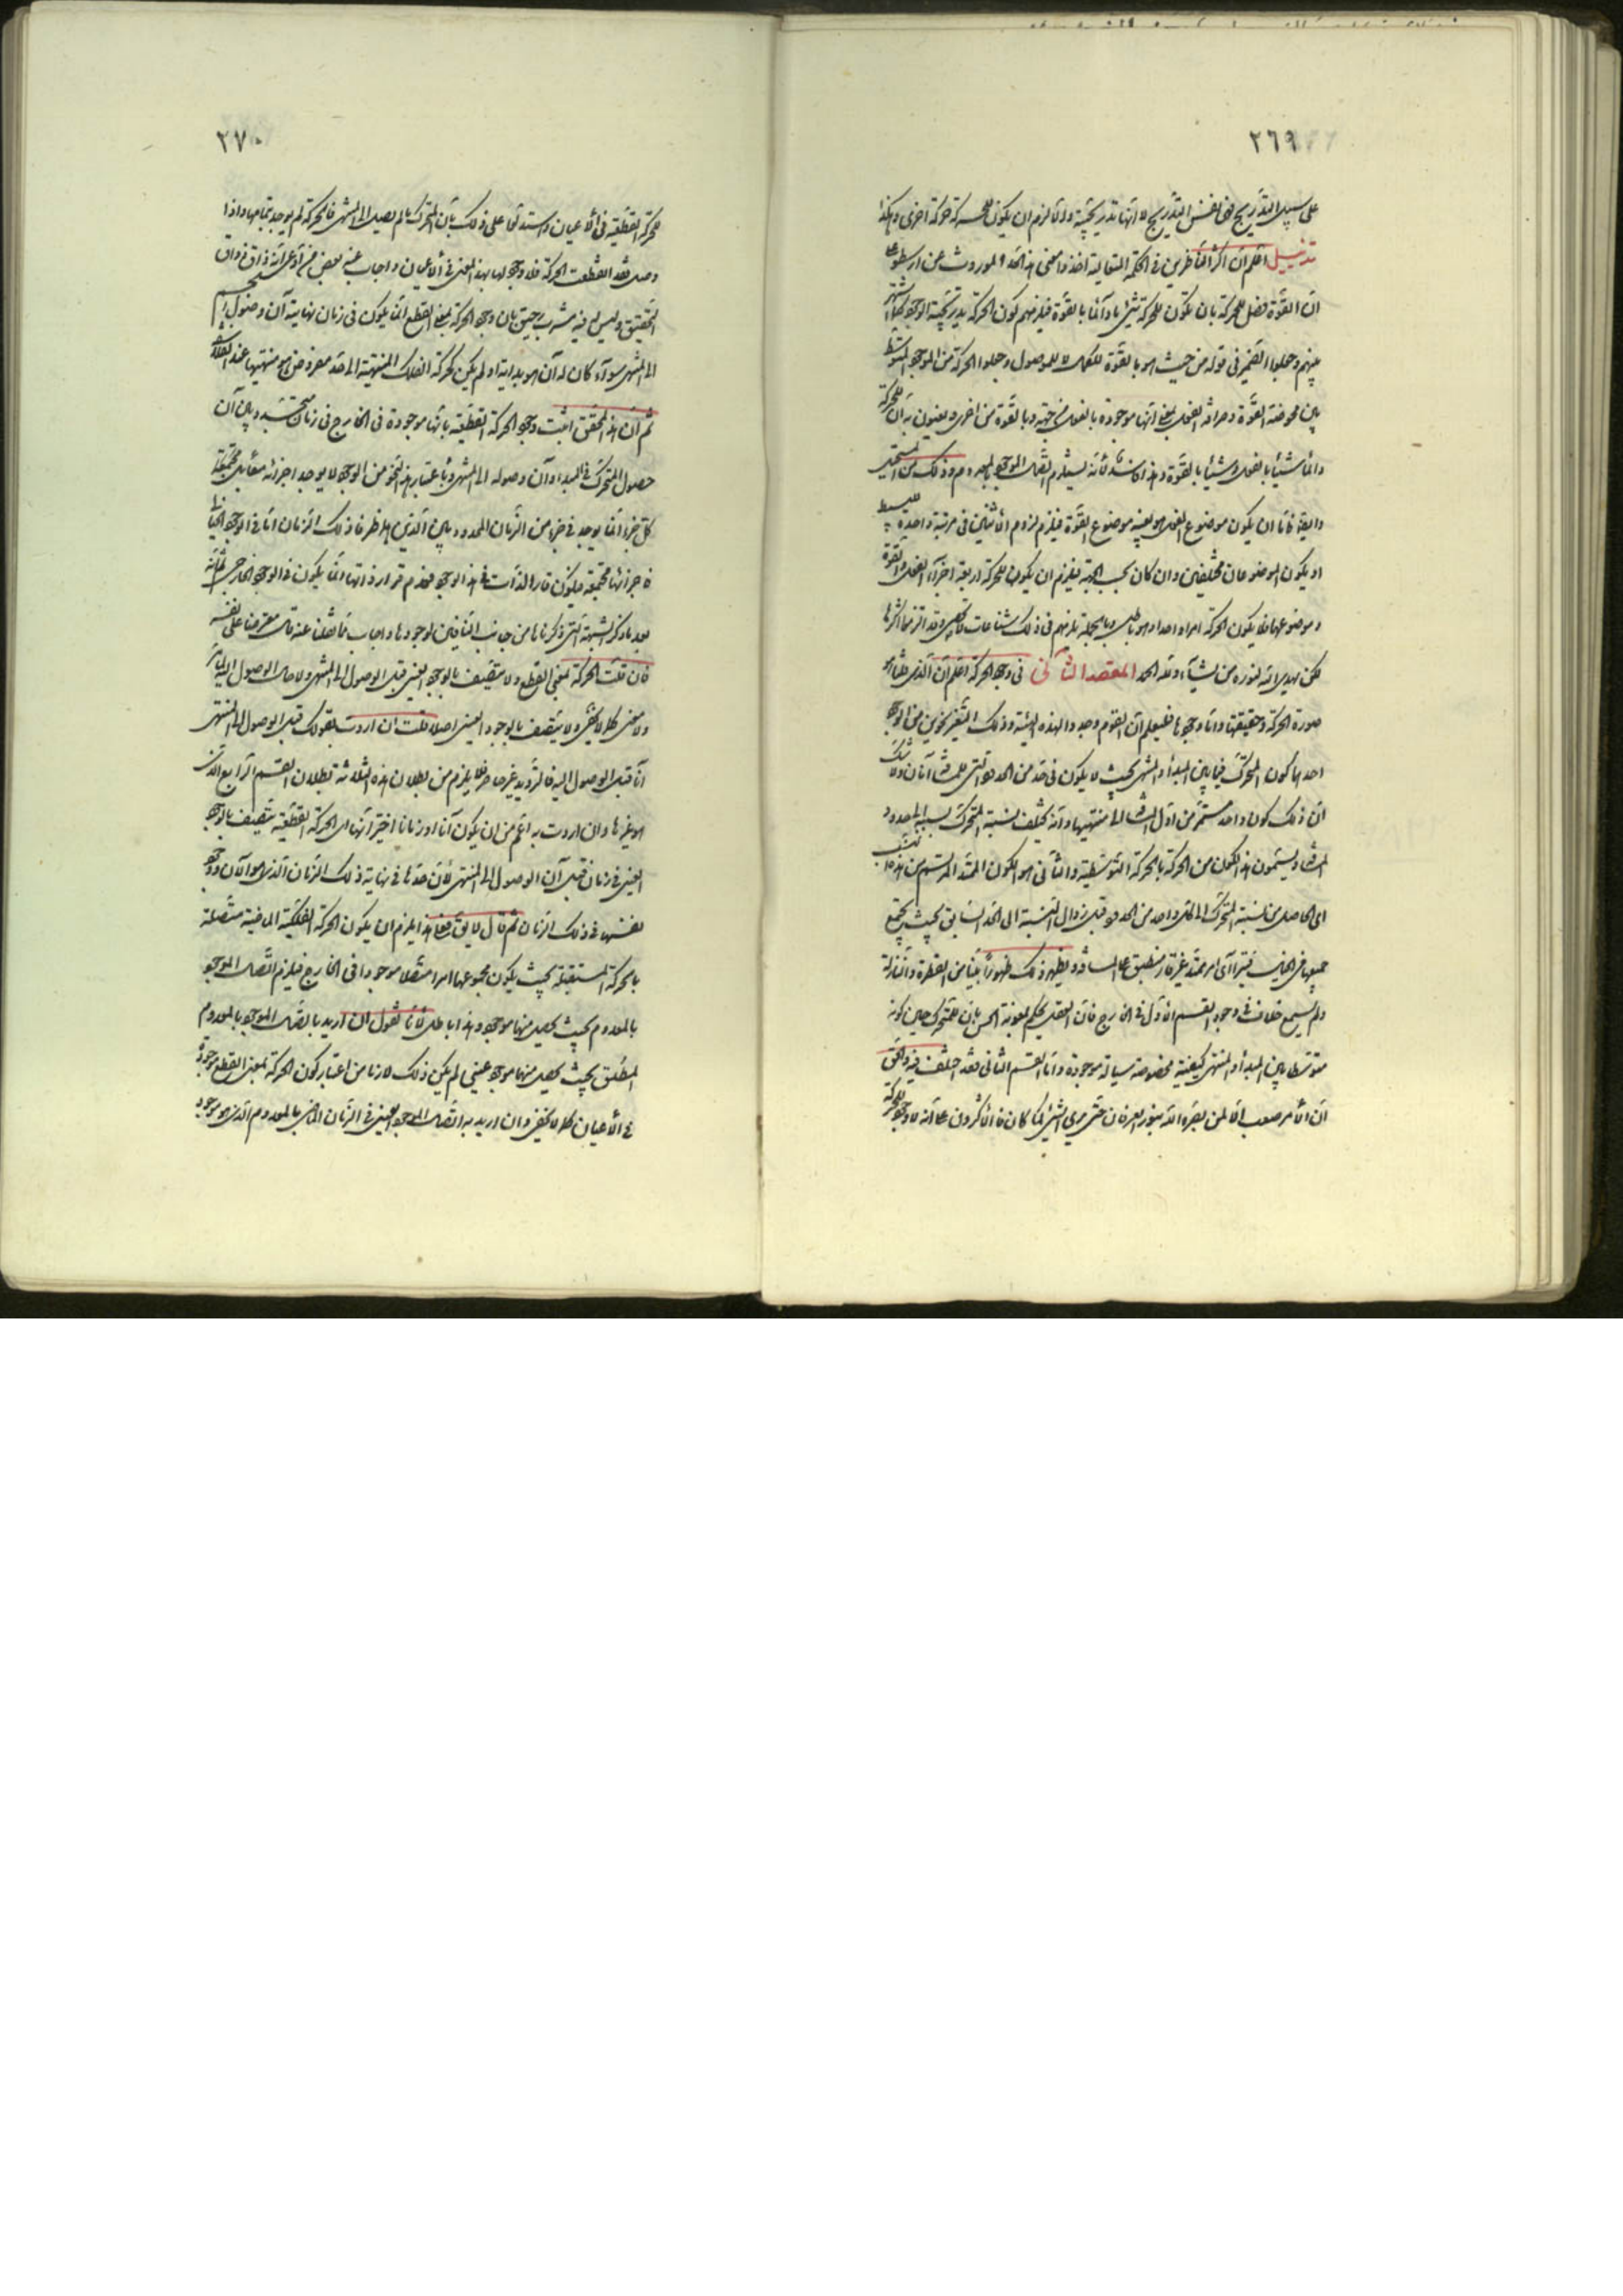 ٢٦٩
على سبيل التدريج فهى نفس التدريج لا انها تدريجية والا لزم ان يكون للحركة حركة اخرى وهكذا
تذييل اعلم ان اكثر الناظرين فى الحكمة المتعالية اخذوا معنى هذا الحد الموروث عن ارسطو على
ان القوة فصل للحركة بان يكون للحركة شئ ما دائما بالقوة فيلزمهم كون الحركة تدريجية الوجود كما اشتهر
بينهم وجعلوا الضمير فى قوله من حيث هو بالقوة للكمال لا للموصول وجعلوا الحركة من الموجود المتوسط
بين محوضة القوة وصرافة الفعل بمعنى انها موجودة بالفعل من جهة وبالقوة من اخرى ويعنون به ان للحركة
دائما شيئا بالفعل وشيئا بالقوة وهذا فاسد لانه يستلزم اتصال الموجود بالمعدوم وذلك من المستحيل
وايضا فاما ان يكون موضوع الفعل هو بعينه موضوع القوة فيلزم لزوم الاثنين فى مرتبة واحدة بسيط
او يكون الموضوعان مختلفين وان كان بحسب الجهة فيلزم ان يكون للحركة اربعة اجزاء الفعل والقوة
وموضوعهما فلا يكون الحركة امرا واحدا وهو باطل وبالجملة يلزمهم فى ذلك شناعات وقد التزموا اكثرها
لكن يهدى الله لنوره من يشاء ولله الحمد المقصد الثانى فى وجود الحركة اعلم ان الذى
صورة الحركة وحقيقتها واما وجودها فليعلم ان القوم وجدوا لهذه الهيئة وذلك التغير نحوين من الوجود
احدهما كون المتحرك فيما بين المبدأ والمنتهى بحيث لا يكون فى حد من الحدود التى للمسافة آنان ولا شك
ان ذلك كون واحد مستمر من اول المسافة الى منتهيها وانه يختلف نسبة المتحرك بسببه الى حدود
المسافة ويسمون هذا الكون من الحركة بالحركة التوسطية والثانى هو الكون الممتد المرتسم من هذا
اى الحاصل من نسبة المتحرك الى كل واحد من الحدود قبل زوال النسبة الى الحد السابق بحيث يجتمع
جميعها فى الخيال فيترا آى امر ممتد غير قار منطبق على المسافة ويظهر ذلك ظهورا بينا من القطرة النازلة
ولم يسمع خلاف فى وجود القسم الاول فى الخارج فان العقل يحكم بمعونة الحس بان للمتحرك حين كونه
متوسطا بين المبدأ والمنتهى كيفية مخصوصة سيالة موجودة واما القسم الثانى فقد اختلف فيه والحق
ان الامر صعب الا لمن بصره الله بنور العرفان حتى يرى الشئ كما كان فالاكثرون على انه لا وجود للحركة
٢٧٠
للحركة القطعية فى الاعيان واستدلوا على ذلك بان المتحرك ما لم يصل الى المنتهى فالحركة لم يوجد بتمامها واذا
وصل فقد انقطعت الحركة فلا وجود لها بهذا المعنى فى الاعيان واجاب عنه بعض من ادعى انه ذاق ذواق
التحقيق وليس له فيه مشرب رحيق بان وجود الحركة بمعنى القطع انما يكون فى زمان نهايته آن وصول الجسم
الى المنتهى سواء كان له آن هو بدايته او لم يكن كحركة الفلك المنتهية الى حد مفروض هو منتهيها عند
ثم ان هذا المحقق اثبت وجود الحركة القطعية بانها موجودة فى الخارج فى زمان بين آن
حصول المتحرك فى المبدا وآن وصوله الى المنتهى وباعتبار هذا النحو من الوجود لا يوجد اجزائه معا بل مجتمعة
كل جزء انما يوجد فى جزء من الزمان المحدود بين الآنين هما طرفا ذلك الزمان اما فى الوجود الخيالى
فاجزائها مجتمعة فيكون قار الذات فى هذا الوجود فعدم قرار ذاتها انما يكون فى الوجود الخارجى ثم انه
بعد ما ذكر الشبهة التى ذكرناها من جانب النافين لوجودها واجاب بما نقلنا عنه قال معترضا على نفسه
فان قلت الحركة بمعنى القطع لا يتصف بالوجود العينى قبل الوصول الى المنتهى ولا حال الوصول اليه
ولا كما لا يخفى فلا يتصف بالوجود العينى اصلا قلت ان اردت بقولك قبل الوصول الى المنتهى
آنا قبل الوصول اليه فالترديد غير حاصر فلا يلزم من بطلان هذه الثلاثة بطلان القسم الرابع الذى
هو غيرها وان اردت به اعم من ان يكون آنا او زمانا اخترنا انها اى الحركة القطعية يتصف بالوجود
العينى فى زمان قبل آن الوصول الى المنتهى لان حدها فى نهاية ذلك الزمان الذى هو الآن ووجود
نفسها فى ذلك الزمان ثم قال لا يق فعلى هذا يلزم ان يكون الحركة الفلكية الماضية متصلة
بالحركة المستقبلة بحيث يكون مجموعهما امرا متصلا موجودا فى الخارج فيلزم اتصال الموجود
بالمعدوم بحيث يحصل منهما موجود وهذا باطل لانا نقول ان اريد باتصال الموجود بالمعدوم
المطلق بحيث يحصل منهما موجود عينى لم يكن ذلك لازما من اعتبار كون الحركة بمعنى القطع موجودة
فى الاعيان كما لا يخفى وان اريد به اتصال الموجود العينى فى الزمان الماضى بالمعدوم الذى هو موجود